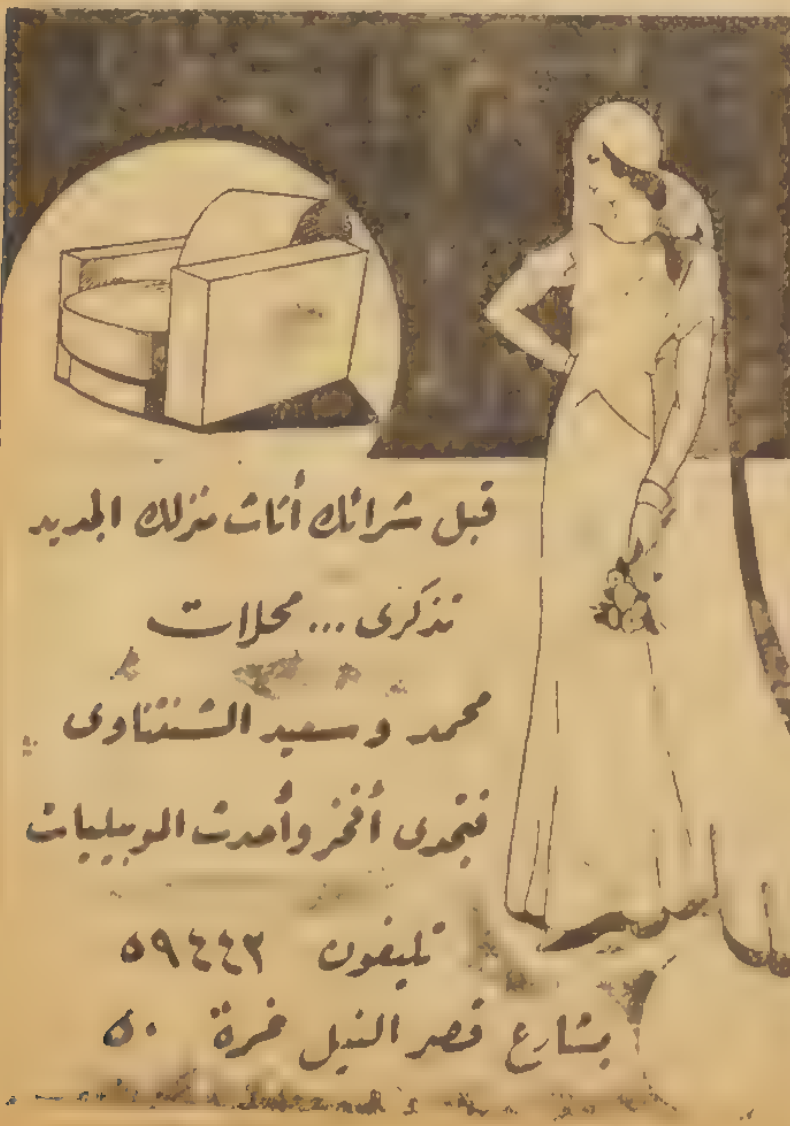 قبل شرائك أثاث منزلك الجديد
تذكرى ... محلات
محمد وسعيد الشنتناوى
فتجدى أفخر وأحدث الموبيليات
تليفون ٥٩٤٤٢
بشارع قصر النيل نمرة ٥٠